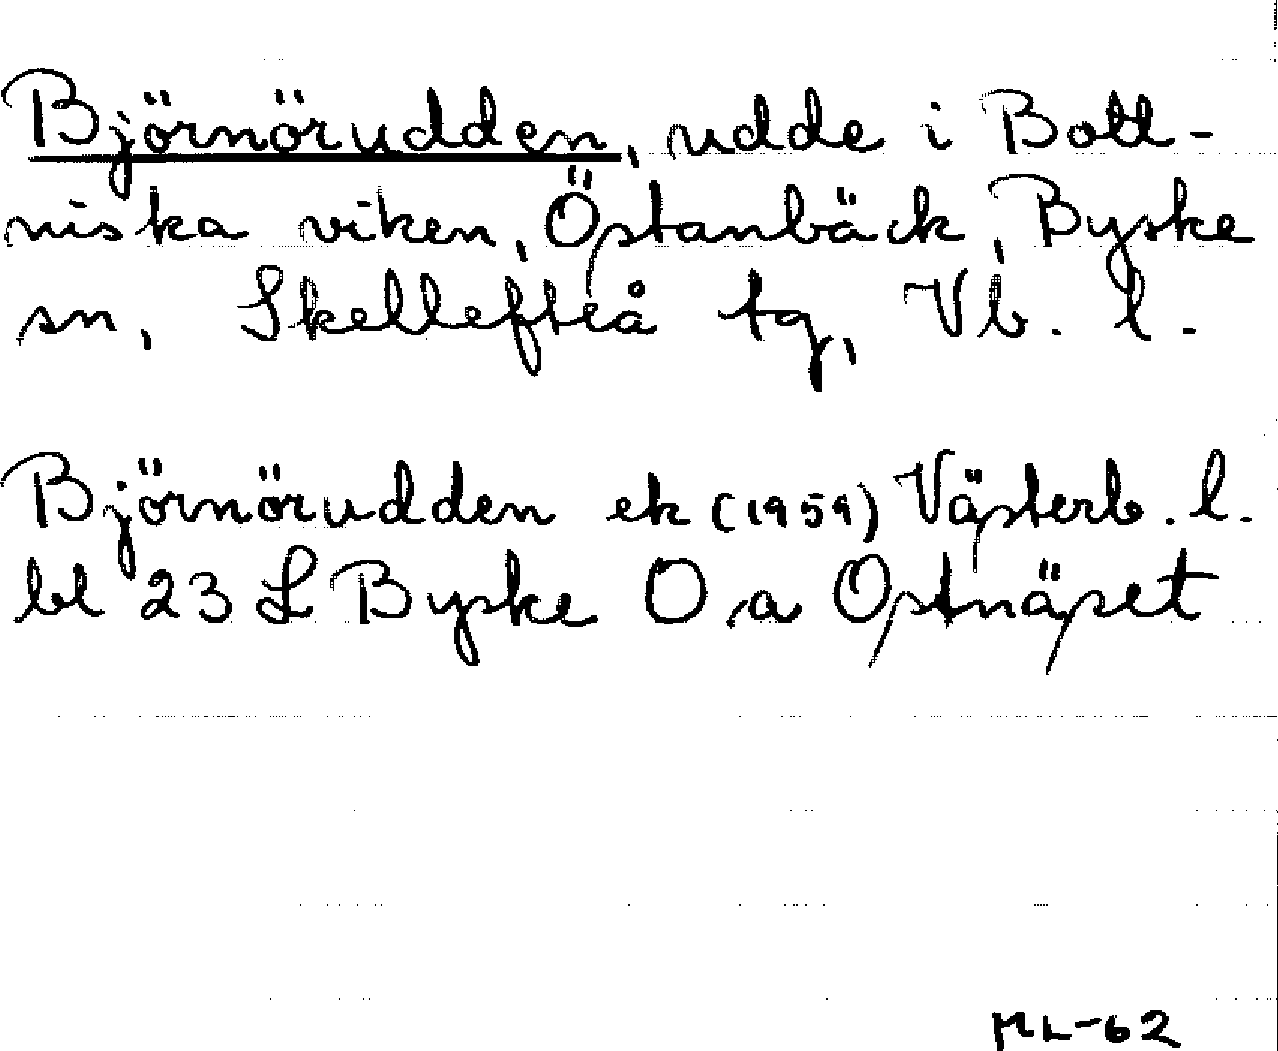 Björnörudden, udde i Bott-
niska viken, Östanbäck, Byske
sn, Skellefteå tg, Vb. l.
Björnörudden ek (1959) Västerb. l.
bl 23 L Byske O, a Ostnäset
ML-62